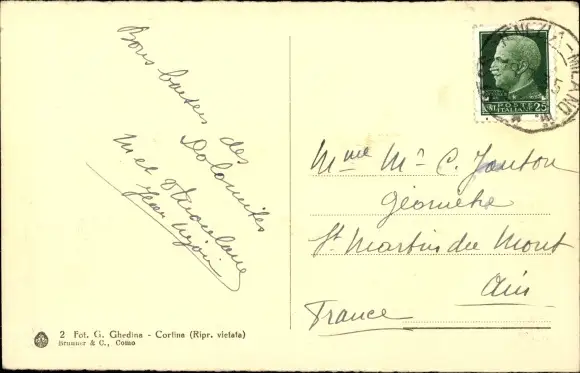 Bons baisers des
Dolomites
M et
Jean
VENEZIA-MILANO
POSTE
ITALIANE
25
Mme Mr C. Jauton
Géomètre
St Martin du Mont
Ain
France
2 Fot. G. Ghedina - Cortina (Ripr. vietata)
Brunner & C., Como